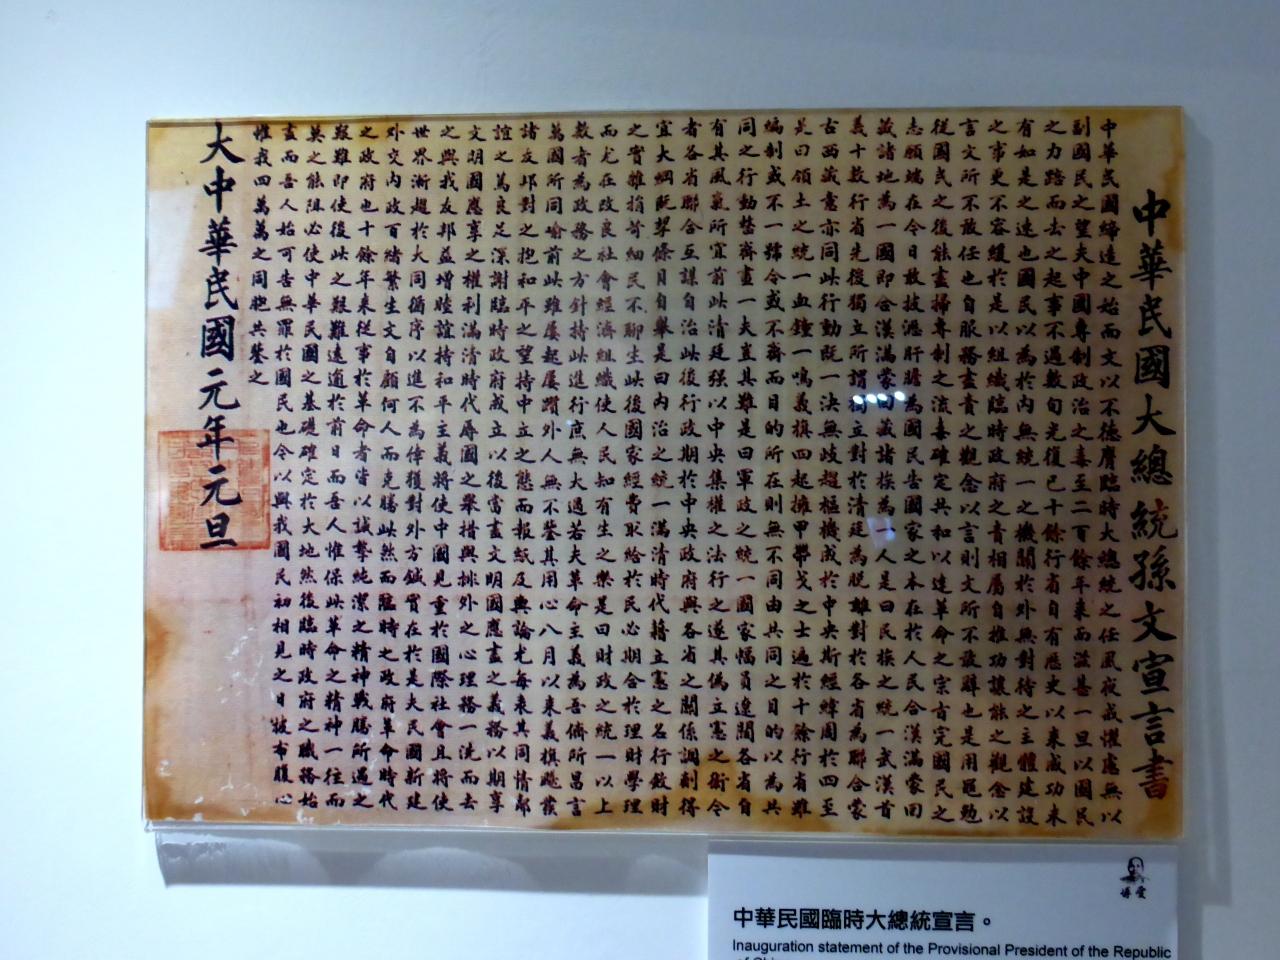 中華民國大總統孫文宣言書
中華民國締造之始而文以不德膺臨時大總統之任夙夜戒懼慮無以
副國民之望夫中國專制政治之毒至二百餘年來而滋甚一旦以國民
之力踣而去之起事不過數旬光復已十餘行省自有歷史以來成功未
有如是之速也國民以為於內無統一之機關於外無對待之主體建設
之事更不容緩於是以組織臨時政府之責相屬自推功讓能之觀念以
言文所不敢任也自服務盡責之觀念以言則文所不敢辭也是用黽勉
從國民之後能盡掃專制之流毒確定共和以達革命之宗旨完國民之
志願端在今日敢披瀝肝膽為國民告國家之本在於人民合漢滿蒙回
藏諸地為一國即合漢滿蒙回藏諸族為一人是曰民族之統一武漢首
義十數行省先後獨立所謂獨立對於清廷為脫離對於各省為聯合蒙
古西藏意亦同此行動既一決無歧趨樞機成於中央斯經緯周於四至
是曰領土之統一血鐘一鳴義旗四起擁甲帶戈之士遍於十餘行省雖
編制或不一號令或不齊而目的所在則無不同由共同之目的以為共
同之行動整齊畫一夫豈其難是曰軍政之統一國家幅員遼闊各省自
有其風氣所宜前此清廷强以中央集權之法行之遂其偽立憲之術今
者各省聯合互謀自治此後行政期於中央政府與各省之關係調劑得
宜大綱既挈條目自舉是曰內治之統一滿清時代藉立憲之名行斂財
之實雜捐苛細民不聊生此後國家經費取給於民必期合於理財學理
而尤在改良社會經濟組織使人民知有生之樂是曰財政之統一以上
數者為政務之方針持此進行庶無大過若夫革命主義為吾儕所昌言
萬國所同喻前此雖屢起屢躓外人無不鑒其用心八月以來義旗飈發
諸友邦對之抱和平之望持中立之態而報紙及輿論尤每表其同情鄰
誼之篤良足深謝臨時政府成立以後當盡文明國應盡之義務以期享
文明國應享之權利滿清時代辱國之舉措與排外之心理務一洗而去
之與我友邦益增睦誼持和平主義將使中國見重於國際社會且將使
世界漸趨於大同循序以進不為倖獲對外方鍼實在於是夫民國新建
外交內政百緒繁生文自顧何人而克勝此然而臨時之政府革命時代
之政府也十餘年來從事於革命者皆以誠摯純潔之精神戰勝所遇之
艱難即使後此之艱難遠逾於前日而吾人惟保此革命之精神一往而
莫之能阻必使中華民國之基礎確定於大地然後臨時政府之職務始
盡而吾人始可告無罪於國民也今以與我國民初相見之日披布腹心
惟我四萬萬之同胞共鑒之
大中華民國元年元旦
博愛
中華民國臨時大總統宣言。
Inauguration statement of the Provisional President of the Republic